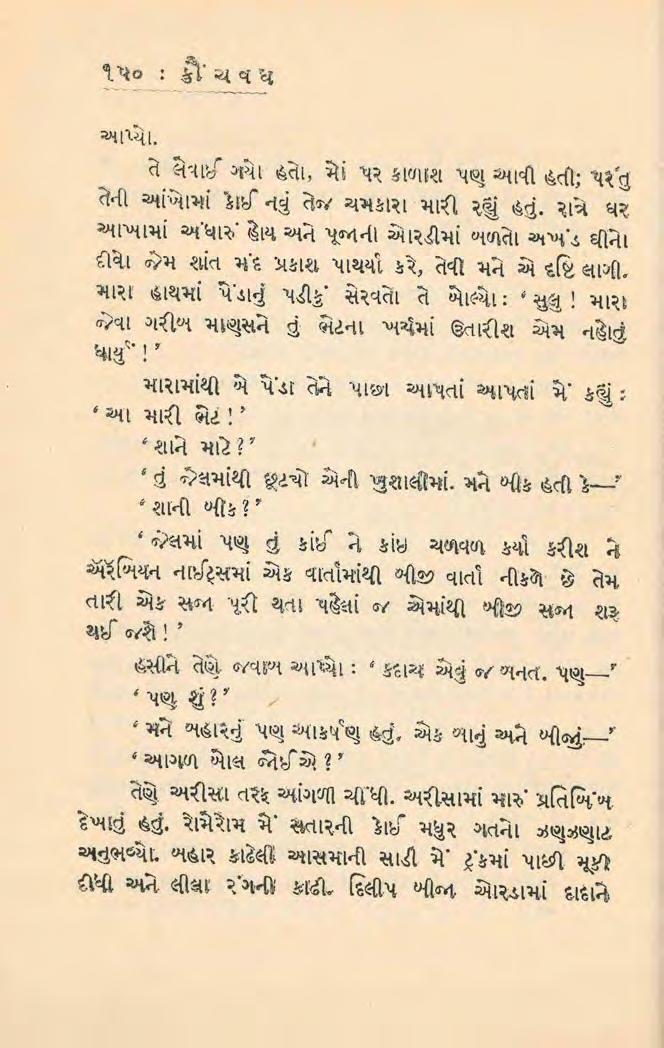 ૧૫૦ : ક્રૌંચવધ
આપ્યો.
તે લેવાઈ ગયો હતો, મોં પર કાળાશ પણ આવી હતી; પરંતુ
તેની આંખોમાં કોઈ નવું તેજ ચમકારા મારી રહ્યું હતું. રાત્રે ઘર
આખામાં અંધારું હોય અને પૂજાની ઓરડીમાં બળતો અખંડ ઘીનો
દીવો જેમ શાંત મંદ પ્રકાશ પાથર્યા કરે, તેવી મને એ દૃષ્ટિ લાગી.
મારા હાથમાં પેંડાનું પડીકું સેરવતો તે બોલ્યો : ‘ સુલુ ! મારા
જેવા ગરીબ માણસને તું ભેટના ખર્ચમાં ઉતારીશ એમ નહોતું
ધાર્યું ! ’
મારામાંથી બે પેંડા તેને પાછા આપતાં આપતાં મેં કહ્યું :
‘ આ મારી ભેટ ! ’
‘ શાને માટે ? ’
‘ તું જેલમાંથી છૂટ્યો એની ખુશાલીમાં. મને બીક હતી કે— ’
‘ શાની બીક ? ’
‘ જેલમાં પણ તું કાંઈ ને કાંઇ ચળવળ કર્યા કરીશ ને
ઍરેબિયન નાઈટ્સમાં એક વાર્તામાંથી બીજી વાર્તા નીકળે છે તેમ
તારી એક સજા પૂરી થતા પહેલાં જ એમાંથી બીજી સજા શરૂ
થઈ જશે ! ’
હસીને તેણે જવાબ આપ્યો : ‘ કદાચ એવું જ બનત. પણ— ’
‘ પણ શું ? ’
‘ મને બહારનું પણ આકર્ષણ હતું. એક બાનું અને બીજું— ’
‘ આગળ બોલ જોઈએ ? ’
તેણે અરીસા તરફ આંગળી ચીંધી. અરીસામાં મારું પ્રતિબિંબ
દેખાતું હતું. રોમેરોમ મેં સતારની કોઈ મધુર ગતનો ઝણઝણાટ
અનુભવ્યો. બહાર કાઢેલી આસમાની સાડી મેં ટ્રંકમાં પાછી મૂકી
દીધી અને લીલા રંગની કાઢી. દિલીપ બીજા ઓરડામાં દાદાને